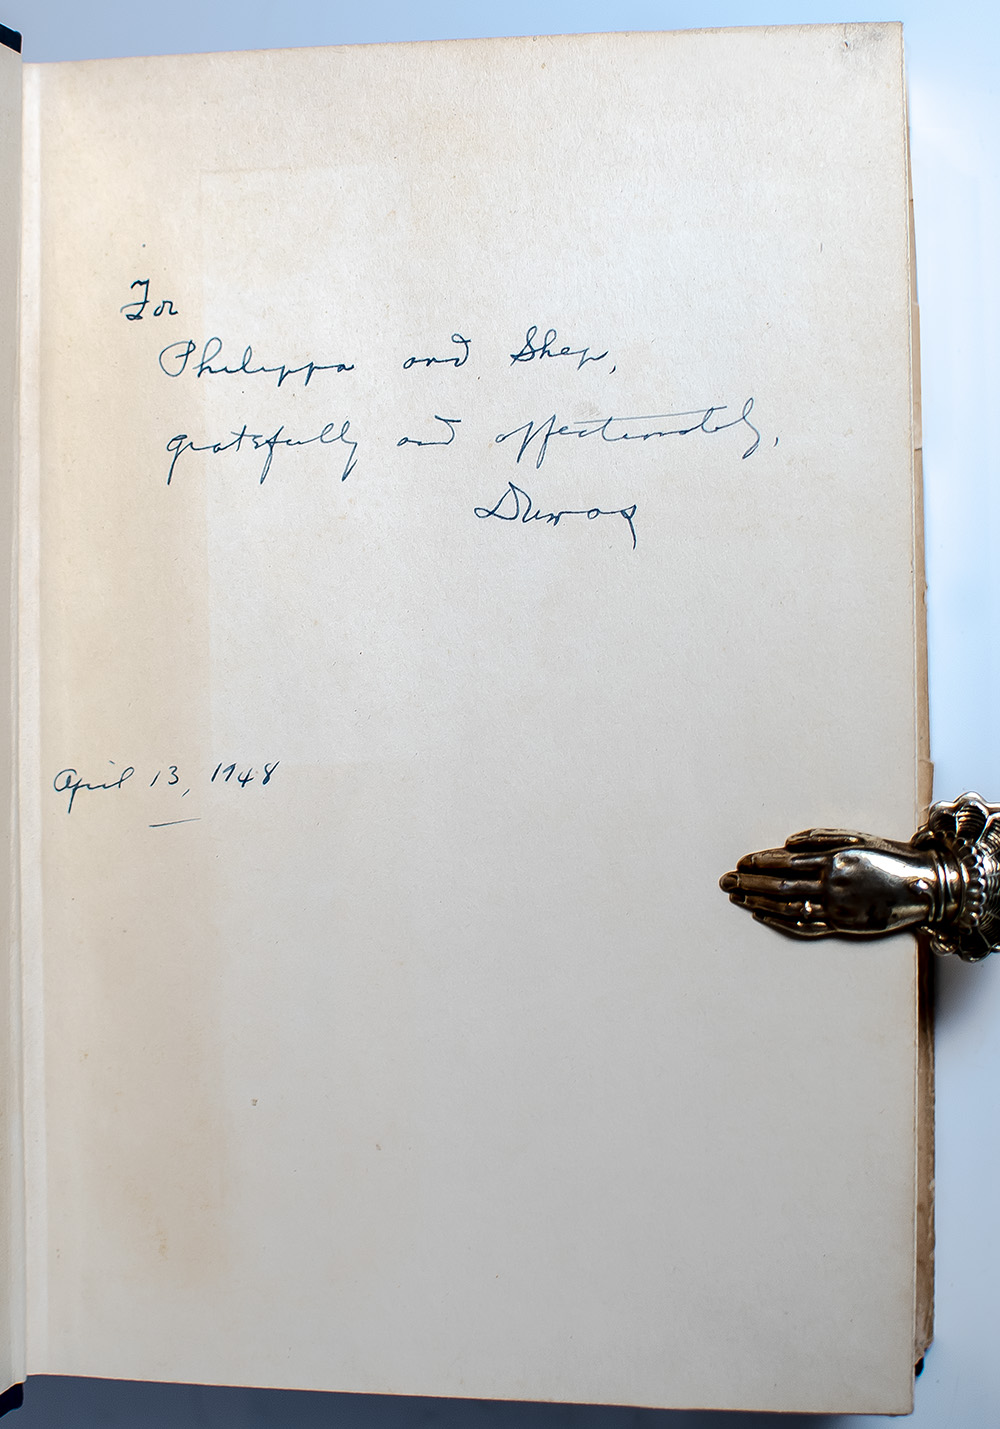 For
Philippa and Shep,
gratefully and affectionately,
Dumas
April 13, 1948